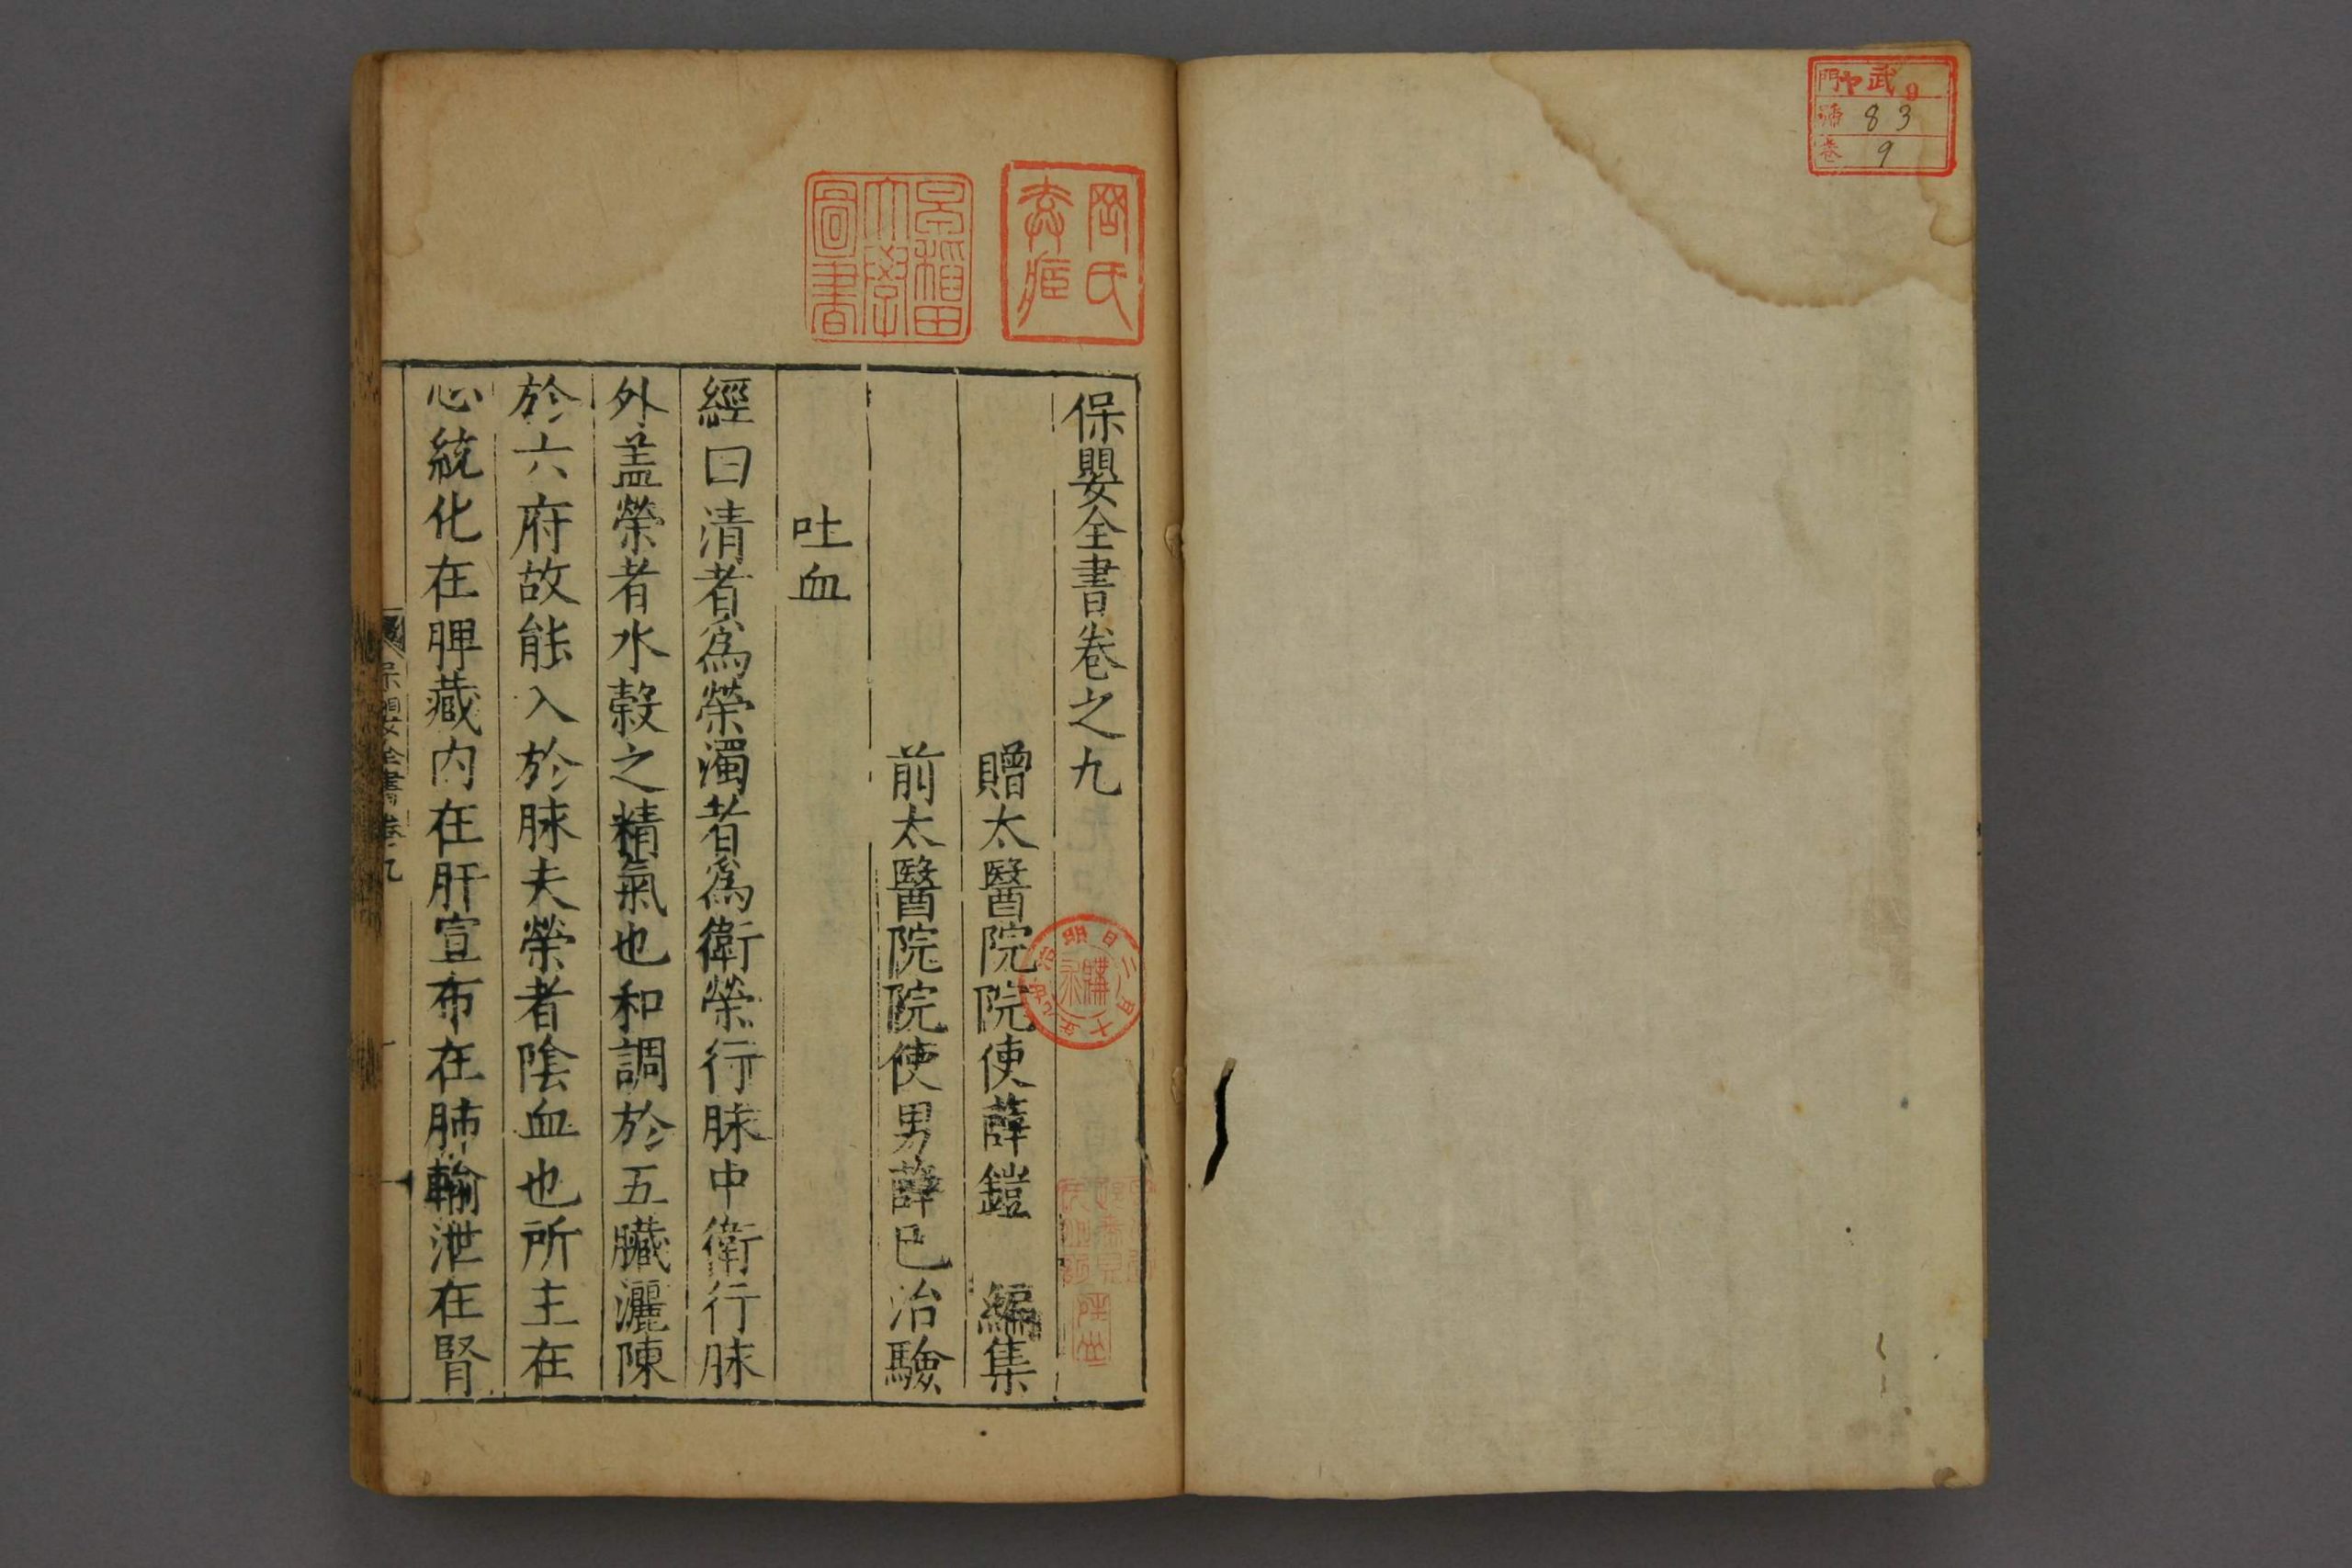 門 ヤ 武9
號 83
卷 9
保嬰全書卷之九
贈太醫院院使薛鎧 編集
前太醫院院使男薛已治驗
吐血
經曰清者爲榮濁者爲衛榮行脉中衛行脉
外盖榮者水穀之精氣也和調於五臟灑陳
於六府故能入於脉夫榮者陰血也所主在
心統化在脾藏内在肝宣布在肺輸泄在腎
保嬰全書 卷九
一
早稲田
大學
圖書